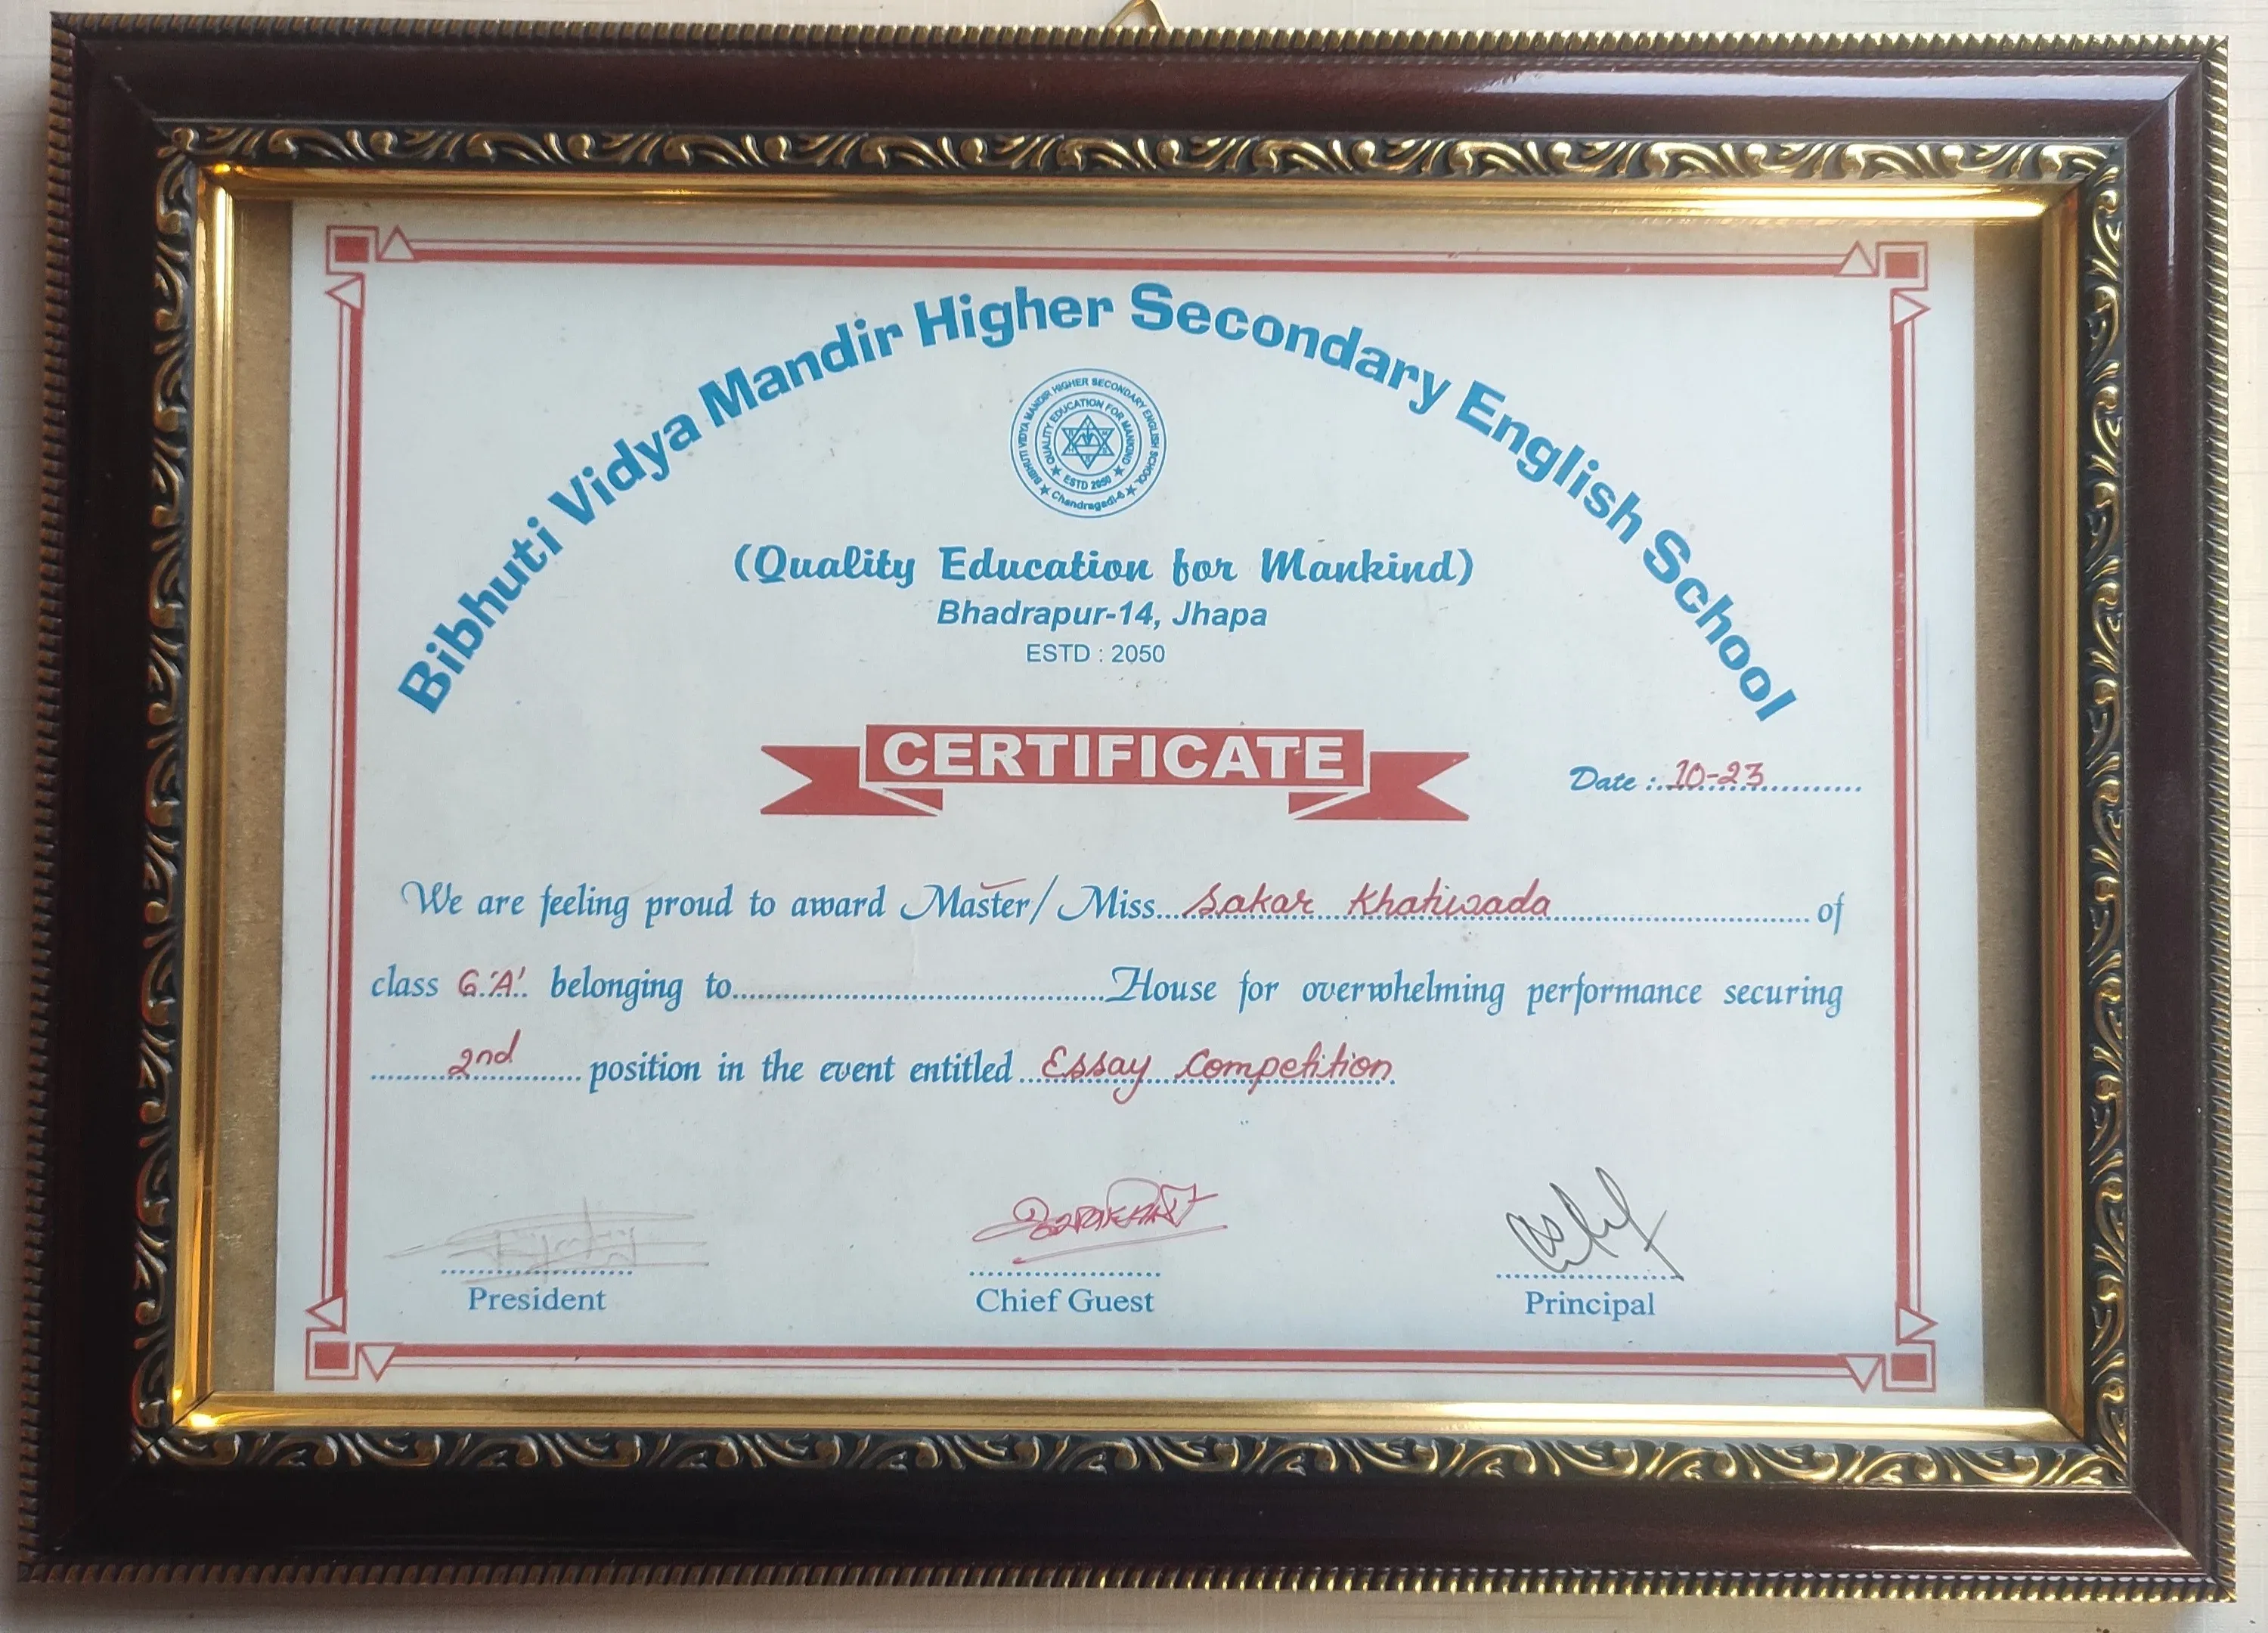 Bibhuti Vidya Mandir Higher Secondary English School
BIBHUTI VIDYA MANDIR HIGHER SECONDARY ENGLISH SCHOOL
★ Chandragadi-6 ★
QUALITY EDUCATION FOR MANKIND
★ ESTD 2050 ★
(Quality Education for Mankind)
Bhadrapur-14, Jhapa
ESTD : 2050
CERTIFICATE
Date : 10-23
We are feeling proud to award Master/ Miss Sakar Khatiwada of
class 6 'A' belonging to House for overwhelming performance securing
2nd position in the event entitled Essay Competition
President
Chief Guest
Principal